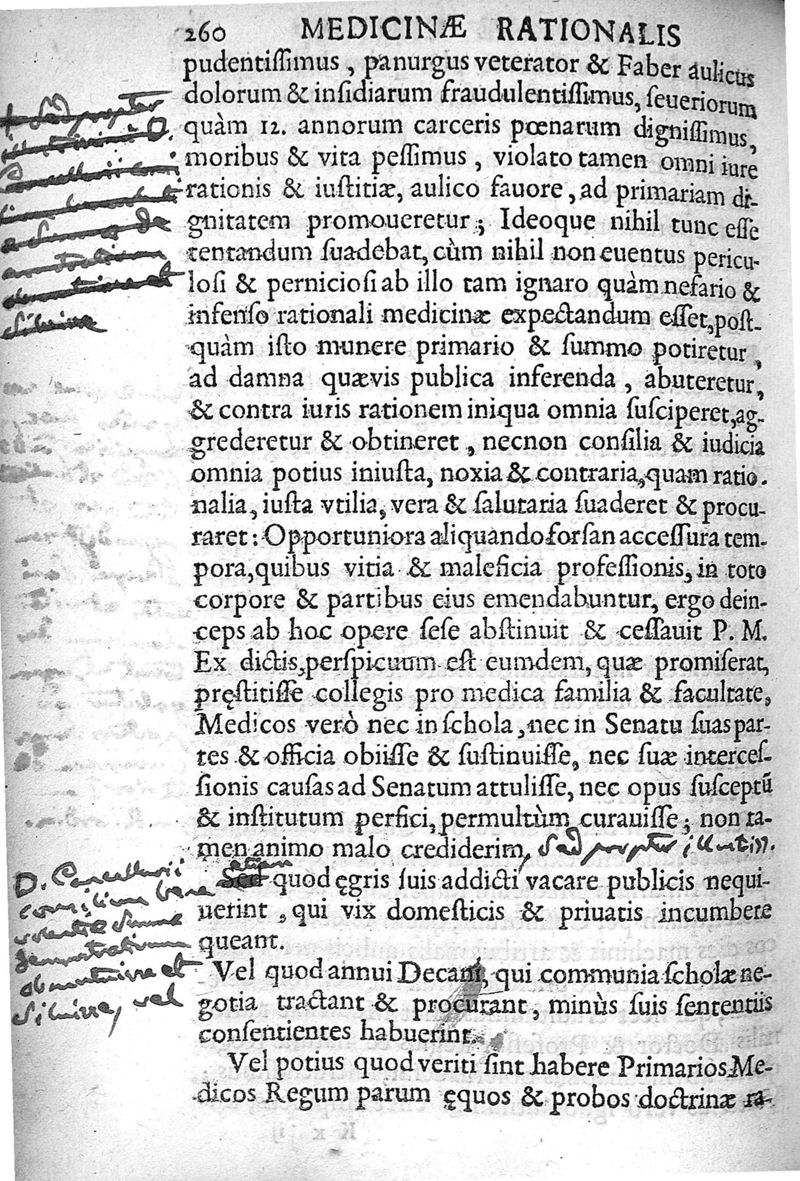 260 MEDICINÆ RATIONALIS
pudentiſſimus, panurgus veterator & Faber aulicus
dolorum & inſidiarum fraudulentiſſimus, ſeueriorum
quàm 12. annorum carceris pœnarum digniſſimus,
moribus & vita peſſimus, violato tamen omni iure
rationis & iuſtitiæ, aulico fauore, ad primariam di-
gnitatem promoueretur; Ideoque nihil tunc eſſe
tentandum ſuadebat, cùm nihil non euentus pericu-
loſi & pernicioſi ab illo tam ignaro quàm nefario &
infenſo rationali medicinæ expectandum eſſet, poſt-
quàm iſto munere primario & ſummo potiretur,
ad damna quævis publica inferenda, abuteretur,
& contra iuris rationem iniqua omnia ſuſciperet, ag-
grederetur & obtineret, necnon conſilia & iudicia
omnia potius iniuſta, noxia & contraria, quam ratio-
nalia, iuſta vtilia, vera & ſalutaria ſuaderet & procu-
raret: Opportuniora aliquando forſan acceſſura tem-
pora, quibus vitia & maleficia profeſſionis, in toto
corpore & partibus eius emendabuntur, ergo dein-
ceps ab hoc opere ſeſe abſtinuit & ceſſauit P. M.
Ex dictis, perſpicuum eſt eumdem, quæ promiſerat,
pręſtitiſſe collegis pro medica familia & facultate,
Medicos verò nec in ſchola, nec in Senatu ſuas par-
tes & officia obiiſſe & ſuſtinuiſſe, nec ſuæ interceſ-
ſionis cauſas ad Senatum attuliſſe, nec opus ſuſceptū
& inſtitutum perfici, permultùm curauiſſe; non ta-
men animo malo crediderim, Sed propter illustiss.
D. Cancellarii
etiam
Sed quod ęgris ſuis addicti vacare publicis nequi-
uerint, qui vix domeſticis & priuatis incumbere
queant.
obmutuisse et
siluisse, vel
Vel quod annui Decani, qui communia ſcholæ ne-
gotia tractant & procurant, minùs ſuis ſententiis
conſentientes habuerint.
Vel potius quod veriti ſint habere Primarios Me-
dicos Regum parum ęquos & probos doctrinæ ra-